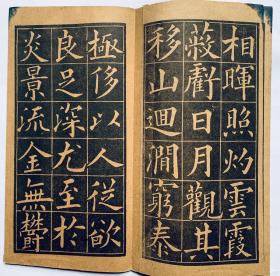 相暉照灼雲霞
蔽虧日月觀其
移山迴澗窮泰
極侈以人從欲
良足深尤至於
炎景流金無欝